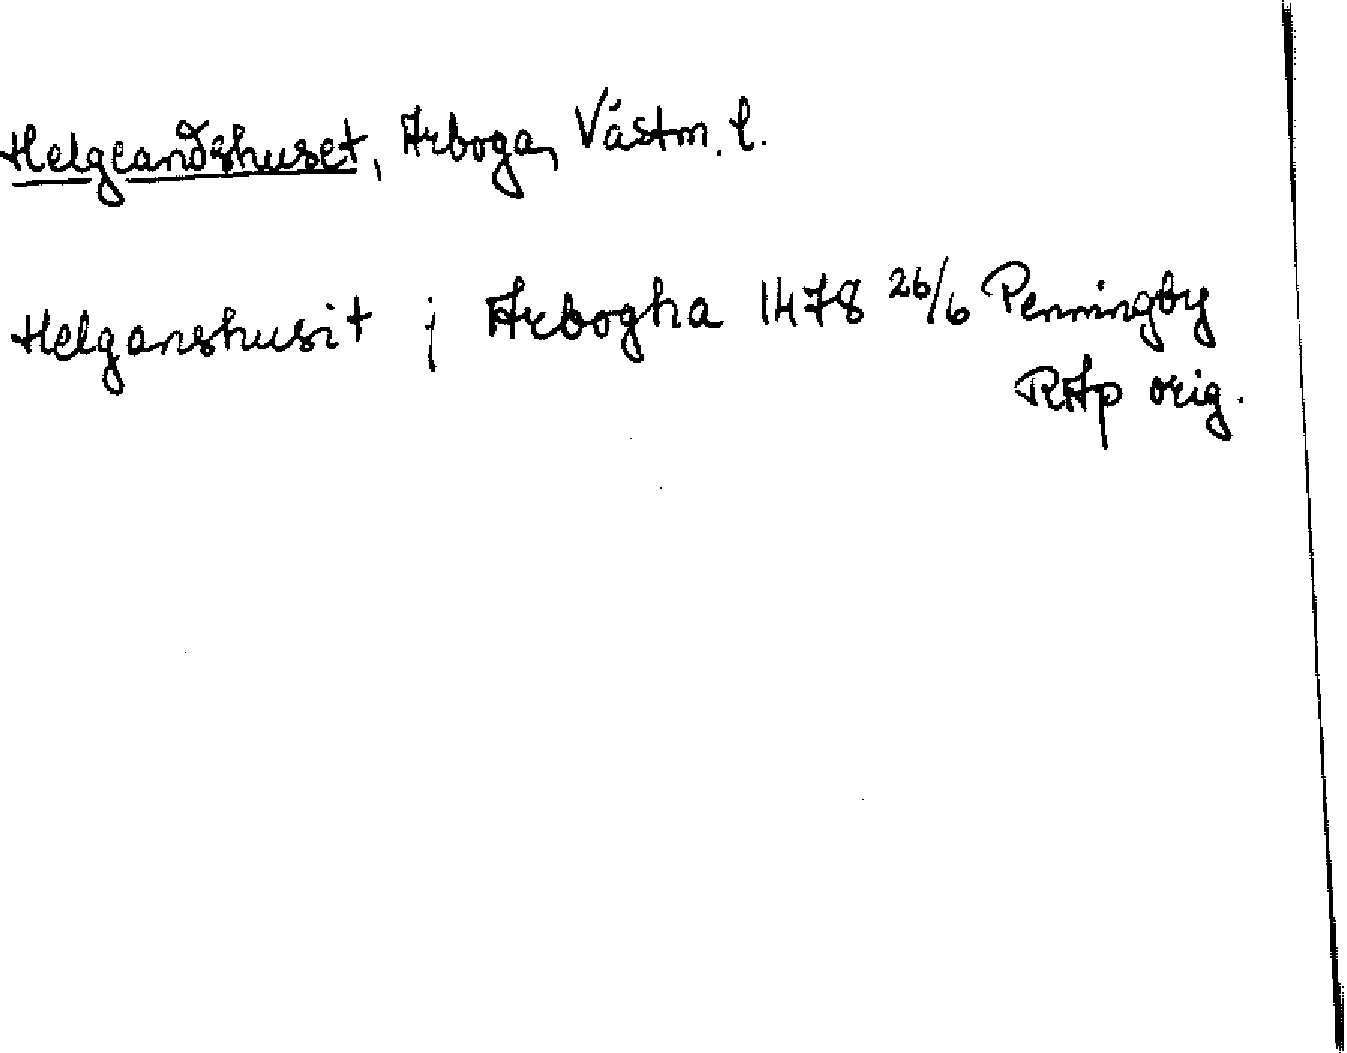 Helgeandshuset, Arboga, Västm. l.
Helganshusit j Arbogha 1478 26/6 Penningby
RAp orig.